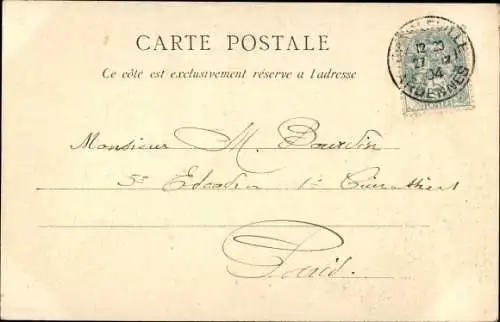 CARTE POSTALE
Ce côté est exclusivement réservé a l'adresse
12 20
04
ARDENNES
POSTES
Monsieur M. Bourdin
5e Escadon 1er Cuirassiers
Paris.